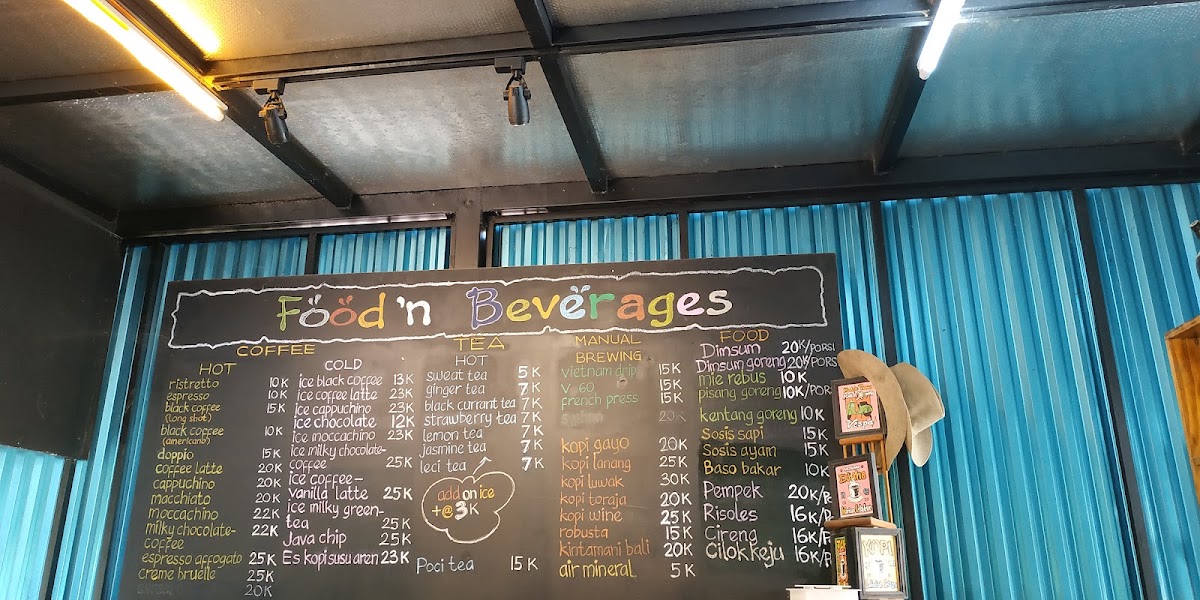 Food 'n Beverages
COFFEE
HOT
ristretto 10K
espresso 10K
black coffee 15K
(long shot)
black coffee 10K
(americano)
doppio 15K
coffee latte 20K
cappuchino 20K
macchiato 20K
moccachino 22K
milky chocolate- 22K
coffee
espresso affogato 25K
creme bruelle 25K
20K
COLD
ice black coffee 13K
ice coffee latte 23K
ice cappuchino 23K
ice chocolate 12K
ice moccachino 23K
ice milky chocolate-
coffee 25K
ice coffee-
vanilla latte 25K
ice milky green-
tea 25K
Java chip 25K
Es kopi susu aren 23K
TEA
HOT
sweat tea 5K
ginger tea 7K
black currant tea 7K
strawberry tea 7K
lemon tea 7K
jasmine tea 7K
leci tea 7K
add on ice
+@ 3K
Poci tea 15K
MANUAL
BREWING
vietnam drip 15K
V 60 15K
french press 15K
20K
kopi gayo 20K
kopi lanang 25K
kopi luwak 30K
kopi toraja 20K
kopi wine 25K
robusta 15K
kintamani bali 20K
air mineral 5K
FOOD
Dimsum 20K/PORSI
Dimsum goreng 20K/PORS
mie rebus 10K
pisang goreng 10K/POR
kentang goreng 10K
Sosis sapi 15K
Sosis ayam 15K
Baso bakar 10K
Pempek 20K/P
Risoles 16K/P
Cireng 16K/P
Cilok keju 16K/P
KOPI